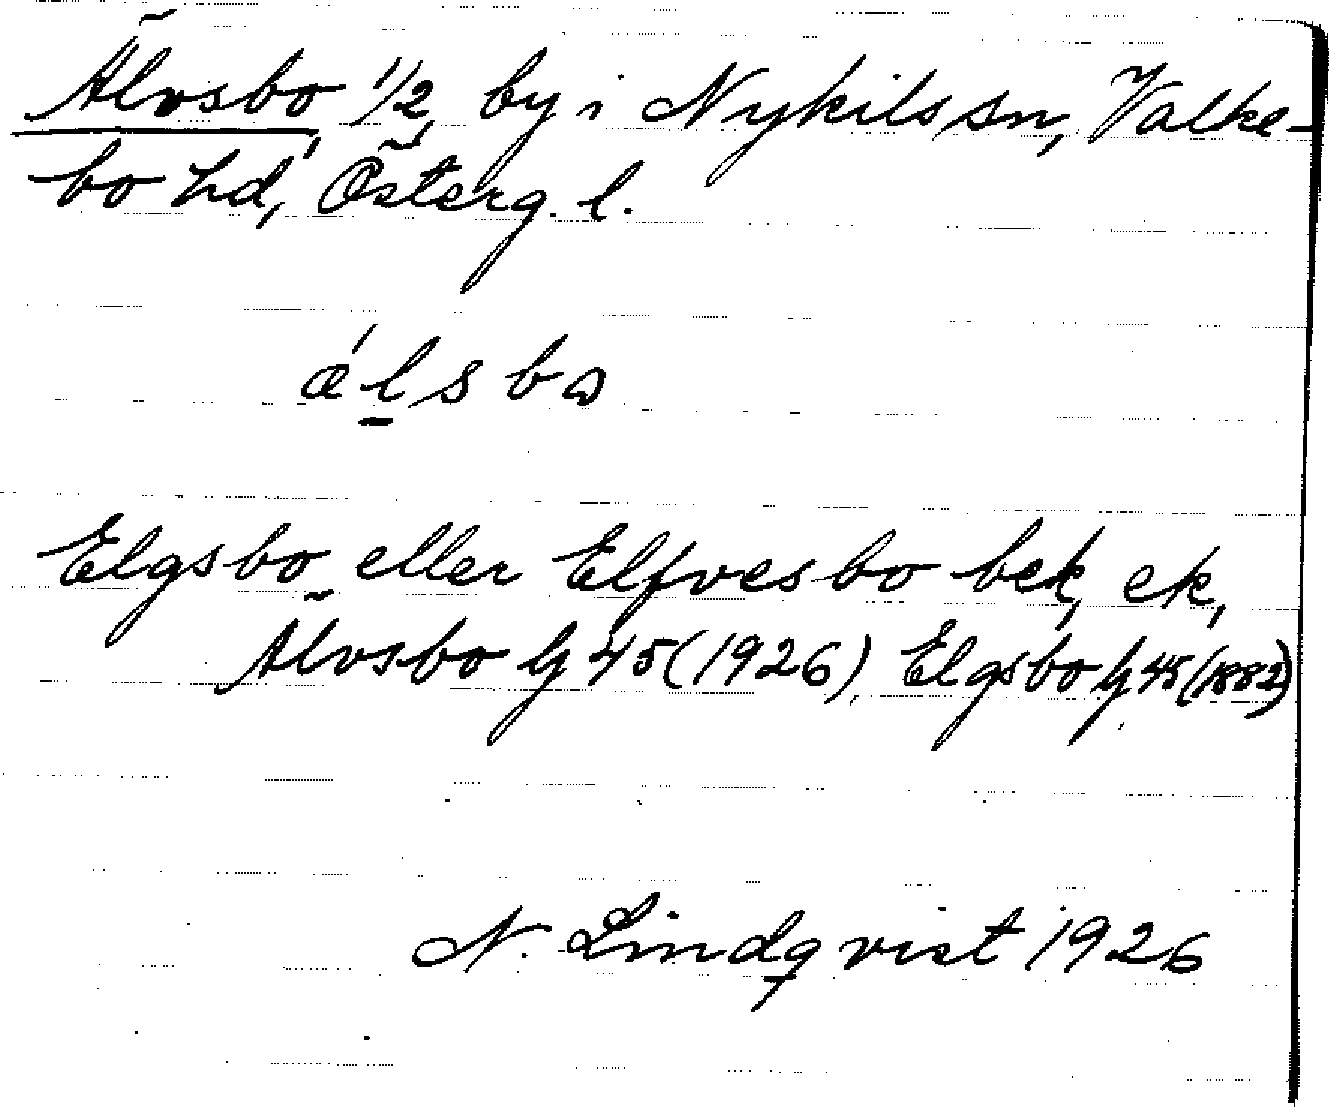 Älvsbo 1/2, by i Nykils sn, Valke-
bo hd, Österg. l.
ǽl̠sbɷ
Elgsbo eller Elfvesbo bek, ek,
Älvsbo Gj 45 (1926), Elgsbo Gj 45 (1882)
N. Lindqvist 1926